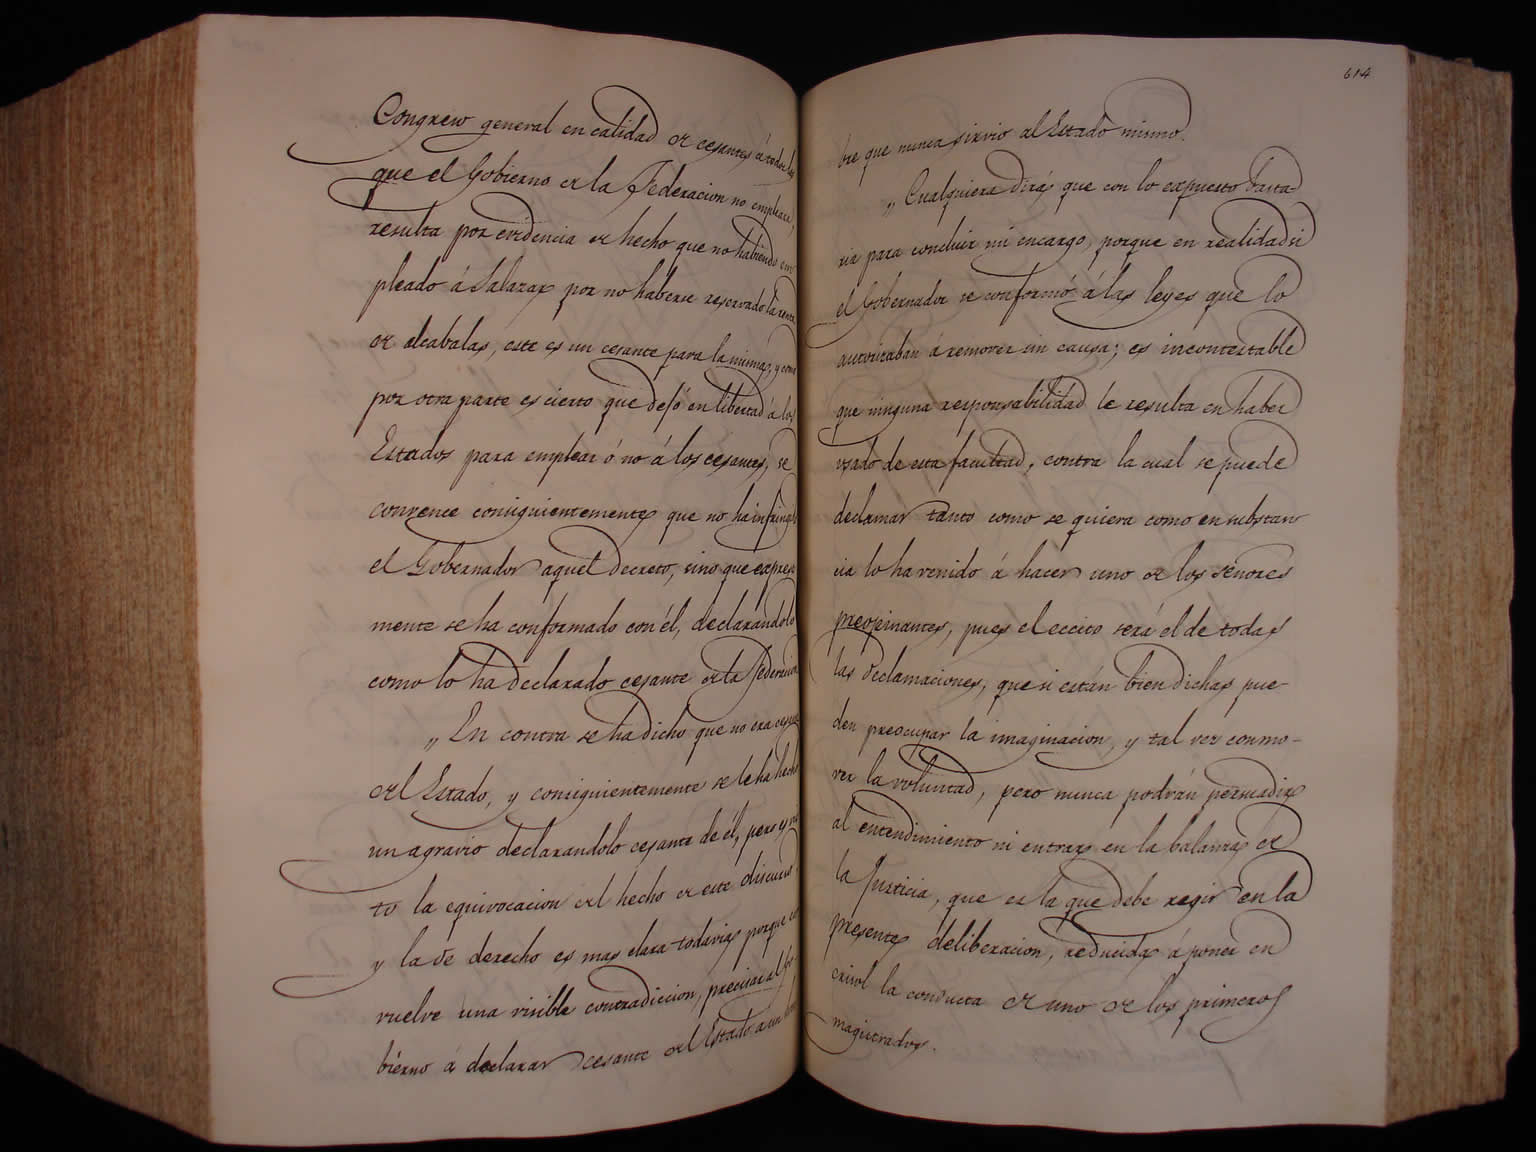 Congreso general en calidad de cesantes á todos los
que el Gobierno de la Federacion no empleara,
resulta por evidencia de hecho que no habiendo em
pleado á Salazar por no haberse reservado la renta
de alcabalas, este es un cesante para la misma, y como
por otra parte es cierto que dejó en libertad á los
Estados para emplear ó no á los cesantes, se
convence consiguientemente que no ha infringido
el Gobernador aquel decreto, sino que expresa
mente se ha conformado con él, declarandolo
como lo ha declarado cesante de la Federacion
„En contra se ha dicho que no era cesante
del Estado, y consiguientemente se le ha hecho
un agravio declarandolo cesante de él, pero
to la equivocacion del hecho de este discurso
y la de derecho es mas clara todavia porque
vuelve una visible contradiccion, precisar al Go
bierno á declarar cesante del Estado a un hom
614
bre que nunca sirvio al Estado mismo.
„Cualquiera dirá que con lo expuesto basta
ria para concluir mi encargo, porque en realidad si
el Gobernador se conformó á las leyes que lo
autorizaban á remover sin causa; es incontestable
que ninguna responsabilidad le resulta en haber
usado de esta facultad, contra la cual se puede
declamar tanto como se quiera como en substan
cia lo ha venido á hacer uno de los señores
preopinantes, pues el eccito será él de todas
las declamaciones, que si están bien dichas pue-
den preocupar la imaginacion, y tal vez conmo-
ver la voluntad, pero nunca podrán persuadir
al entendimiento ni entrar en la balanza de
la Justicia, que es la que debe regir en la
presente deliberacion, reducida á poner en
crisol la conducta de uno de los primeros
magistrados.